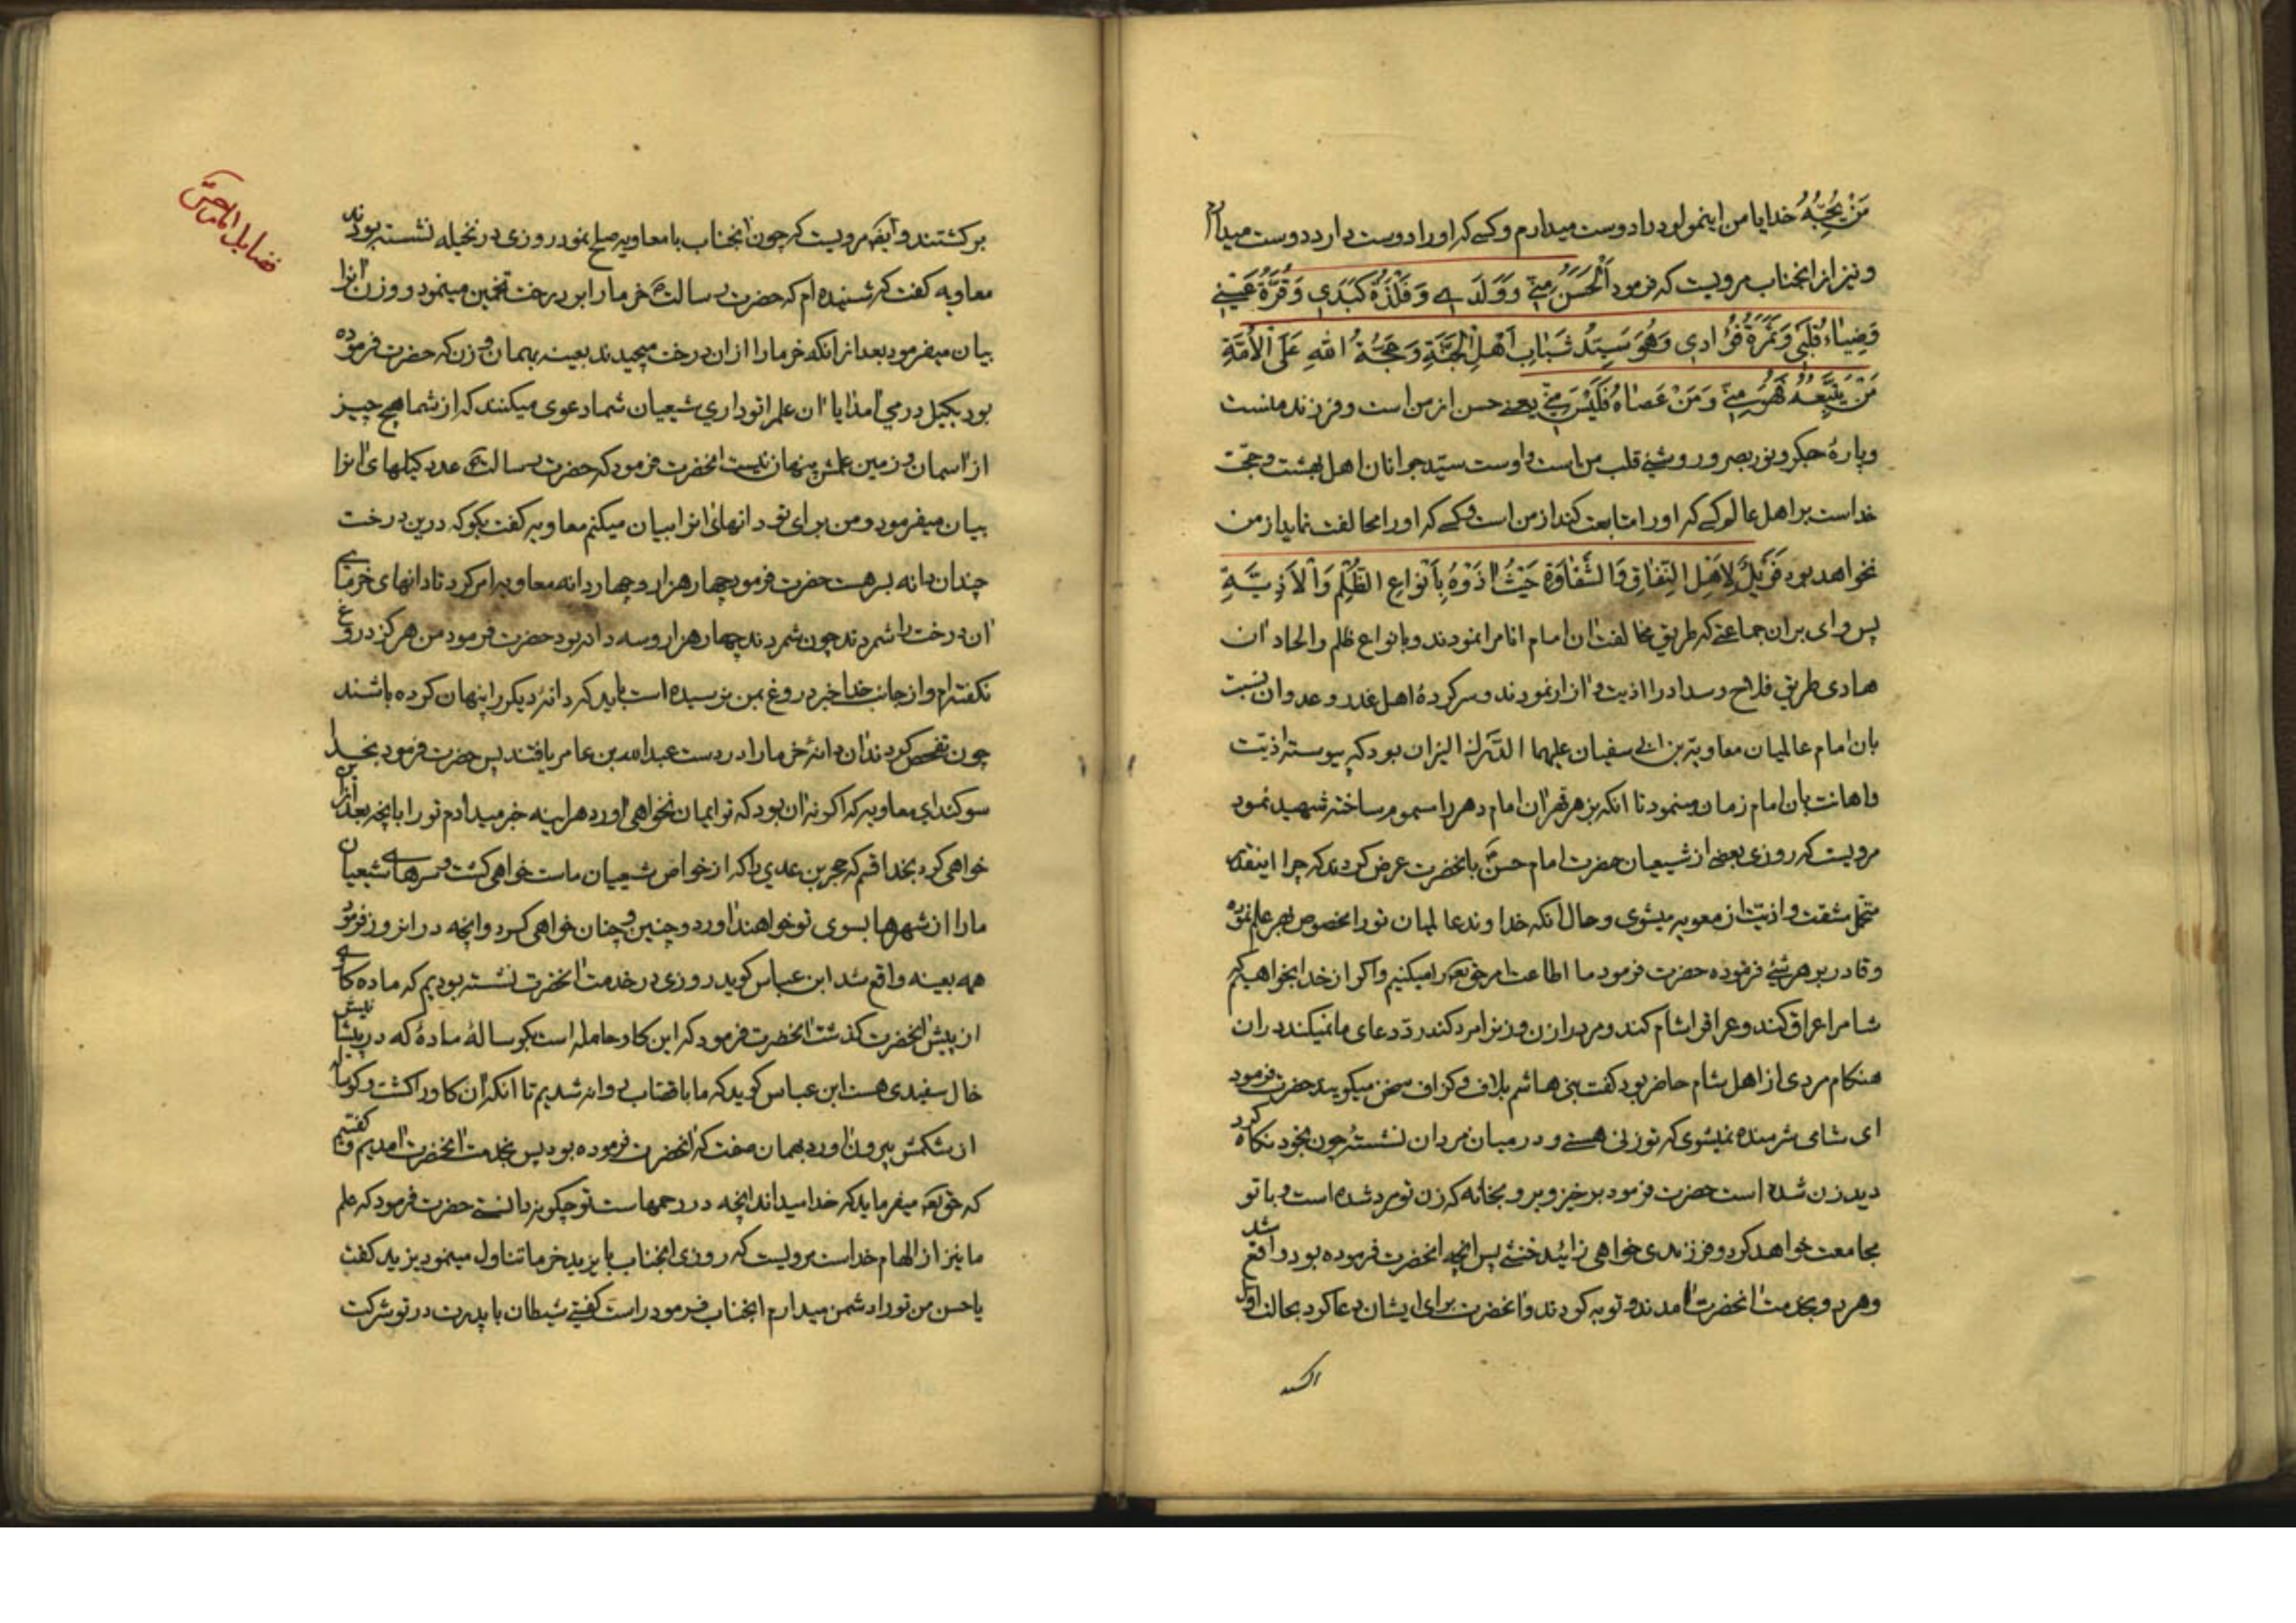 مَنْ یُحِبُّهُ خدایا من اینمولود را دوست میدارم و کسی که او را دوست دارد دوست میدارم
و نیز از انجناب مرویست که فرمود اَلْحَسَنُ مِنّی وَ وَلَدی وَ فَلْذَةُ کَبَدی وَ قُرَّةُ عَیْنی
وَضِیٰاءُ قَلْبی وَ ثَمَرَةُ فُؤٰادی وَ هُوَ سَیِّدُ شَبٰابِ اَهْلِ الْجَنَّةِ وَ حُجَّةُ اللهِ عَلَی الْاُمَّةِ
مَنْ یَتَّبِعُهُ فَهُوَ مِنّی وَ مَنْ عَصٰاهُ فَلَیْسَ مِنّی یعنی حسن از من است و فرزند منست
و پارهٔ جکر و نور بصر و روشنی قلب من است و اوست سیّد جوانان اهل بهشت و حجّت
خداست بر اهل عالم کسی که او را متابعت کند از من است و کسی که او را مخالفت نماید از من
نخواهد بود فَوَیْلٌ لِاَهْلِ النِّفٰاقِ وَ الشَّقٰاوَةِ حَیْثُ اٰذَوْهُ بِاَنْوٰاعِ الظُّلْمِ وَ الْاَذِیَّةِ
پس وای بر ان جماعتی که طریق مخالفت ان امام انام را نمودند و بانواع ظلم و الحاد ان
هادی طریق فلاح و سداد را اذیت و ازار نمودند و سرکردهٔ اهل غدر و عدوان نسبت
بان امام عالمیان معاویة بن ابی سفیان علیهما النیران بود که پیوسته اذیّت
و اهانت بان امام زمان مینمود تا انکه بزهر قهر ان امام دهر را مسموم ساخته شهید نمود
مرویست که روزی بعضی از شیعیان حضرت امام حسن ع بانحضرت عرض کردند که چرا اینقدر
متحمّل مشقت و اذیّت از معویه میشوی و حال انکه خداوند عالمیان تو را مخصوص بهر علم نموده
و قادر بر هر شئ فرموده حضرت فرمود ما اطاعت امر حق تعالی را میکنیم و اکر از خدا بخواهیم که
شام را عراق کند و عراق را شام کند و مرد را زن و زن را مرد کند رد دعای ما نمیکند در ان
هنکام مردی از اهل شام حاضر بود کفت بنی هاشم بلاف و کزاف سخن میکویند حضرت فرمود
ای شامی شرمنده نمیشوی که تو زنی هستی و در میان مردان نشستهٔ چون بخود نکاه کرد
دید زن شده است حضرت فرمود برخیز و برو بخانه که زن تو مرد شده است و با تو
مجامعت خواهد کرد و فرزندی خواهی زائید خنثی پس انچه انحضرت فرموده بود واقع شد
و هر دو بخدمت انحضرت امدند و توبه کردند و انحضرت برای ایشان دعا کرد بحالت اول
برکشتند و ایضا مرویست که چون انجناب با معاویه صلح نمود روزی در نخیله نشسته بودند
معاویه کفت که شنیده ام که حضرت رسالت ص خرما را بر درخت تخمین مینمود و وزن انرا
بیان میفرمود بعد از انکه خرما را از ان درخت میچیدند بعینه بهمان وزن که حضرت فرموده
بود بکیل در می امد ایا ان علم را تو داری شیعیان شما دعوی میکنند که از شما هیچ چیز
از اسمان و زمین علمش پنهان نیست انحضرت فرمود که حضرت رسالت ص عدد کیلهای انرا
بیان میفرمود و من برای تو دانهای انرا بیان میکنم معاویه کفت بکو که درین درخت
چندان دانه بسر هست حضرت فرمود چهار هزار و چهار دانه معاویه امر کرد تا دانهای خرمای
ان درخت را شمردند چون شمردند چهار هزار و سه دانه بود حضرت فرمود من هرکز دروغ
نکفته ام و از جانب خدا خبر دروغ بمن نرسیده است باید که دانهٔ دیکر را پنهان کرده باشند
چون تفحص کردند ان دانهٔ خرما را در دست عبدالله بن عامر یافتند پس حضرت فرمود بخدا
سوکند ای معاویه که اکر نه ان بود که تو ایمان نخواهی اورد هراینه خبر میدادم تو را بانچه بعد ازین
خواهی کرد بخدا قسم که حجر بن عدی را که از خواص شیعیان ماست خواهی کشت و سرهای شیعیان
ما را از شهرها بسوی تو خواهند اورد و چنین و چنان خواهی کرد و انچه در انروز فرمود
همه بعینه واقع شد ابن عباس کوید روزی در خدمت انحضرت نشسته بودیم که ماده کاوی
از پیش انحضرت کذشت انحضرت فرمود که این کاو حامله است بکوسالهٔ مادهٔ که در پیشانیش
خال سفیدی هست ابن عباس کوید که ما با قصّاب روانه شدیم تا انکه ان کاو را کشت و کوساله
از شکمش بیرون اورد بهمان صفت که انحضرت فرموده بود پس بخدمت انحضرت امدیم و کفتیم
که حق تعالی میفرماید که خدا میداند انچه در رحمهاست تو چکونه دانستی حضرت فرمود که علم
ما نیز از الهام خداست مرویست که روزی انجناب با یزید خرما تناول مینمود یزید کفت
یا حسن من تو را دشمن میدارم انجناب فرمود راست کفتی شیطان با پدرت در تو شرکت
فضایل امام حسن